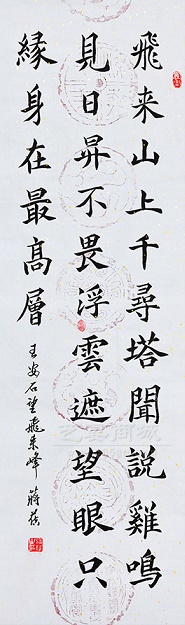 飛来山上千尋塔聞說雞鳴
見日昇不畏浮雲遮望眼只
緣身在最高層
王安石望飛来峰 蔣荻
艺宝商城